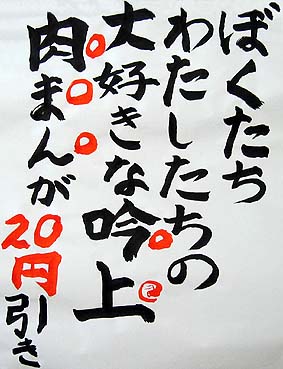 ぼくたち
わたしたちの
大好きな吟上
肉まんが
20円引き